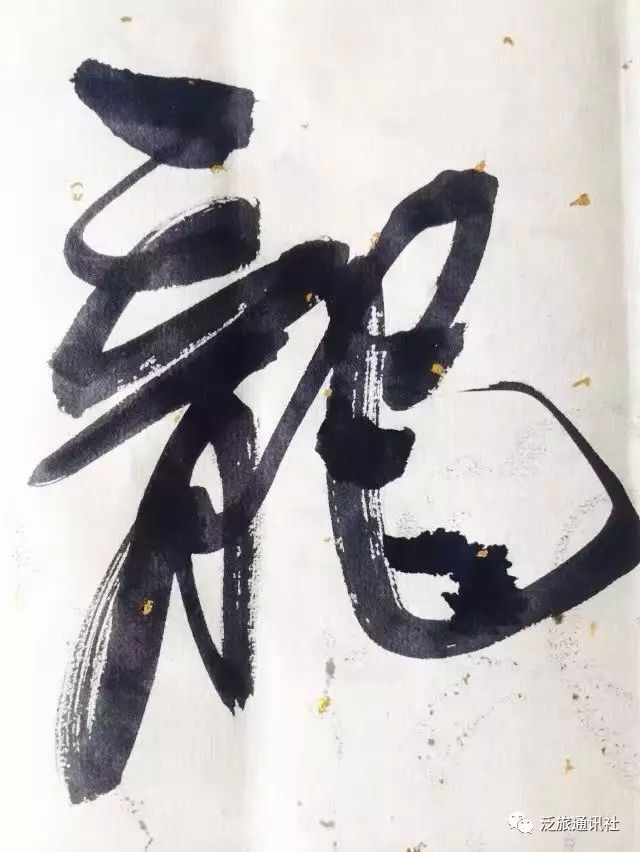 龍
泛旅通讯社